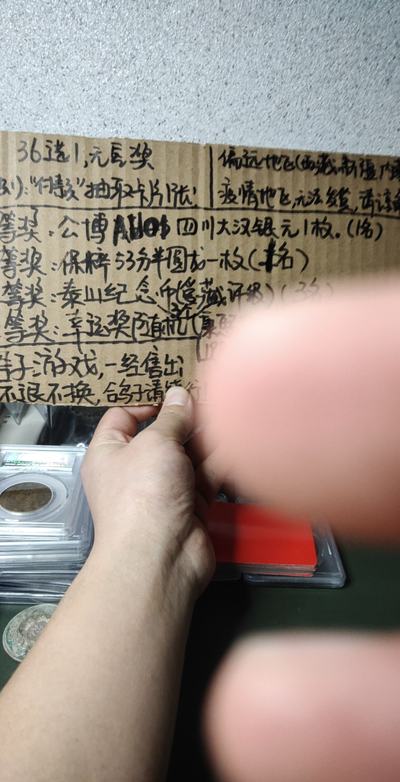 36选1,无白奖
偏远地区(西藏,新疆,内
"抽取卡片1张!
疫情地区,无法发货,请谅
等奖:公博 四川大汉银元1枚。(1名)
等奖:保粹53分半圆龙一枚(1名)
等奖:泰山纪念币(鉴藏评级)(3名)
等奖:幸运奖随机(
子游戏,一经售出
不退不换,鸽子请绕行